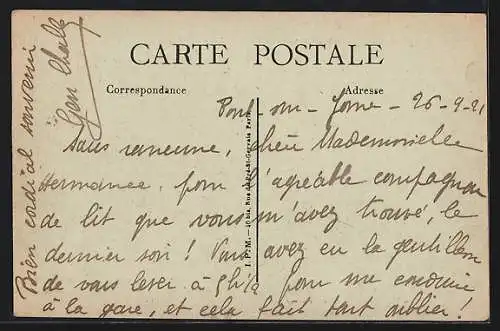 CARTE POSTALE
Correspondance
Adresse
Pont-sur-Yonne - 26-9-21
Sans rancune, chère Mademoiselle
Hermance, pour l'agréable compagnon
de lit que vous m'avez trouvé, le
dernier soir ! Vous avez eu la gentillesse
de vous lever à 5h½ pour me conduire
à la gare, et cela fait tout oublier !
Bien cordial souvenir